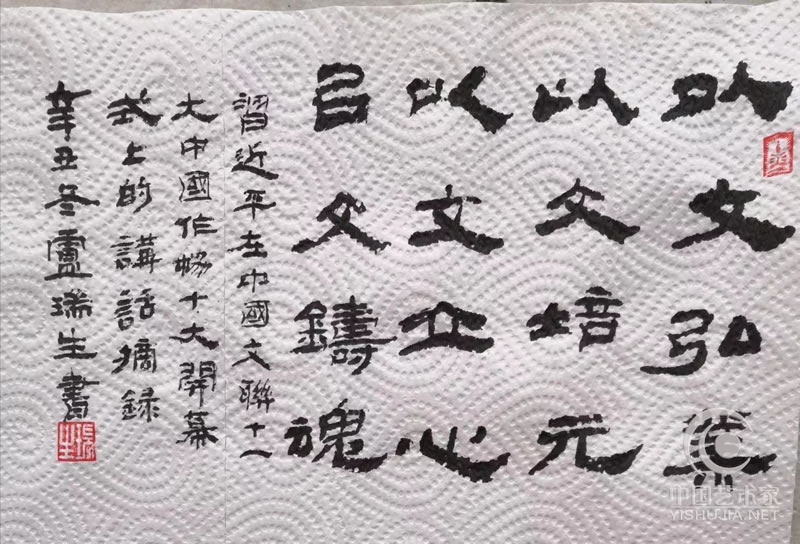 以文弘業
以文培元
以文立心
㠯文鑄魂
習近平在中國文聯十一
大中國作協十大開幕
式上的講話摘録
辛丑冬盧瑞生書
瑞生
中国艺术家
YISHUJIA.NET